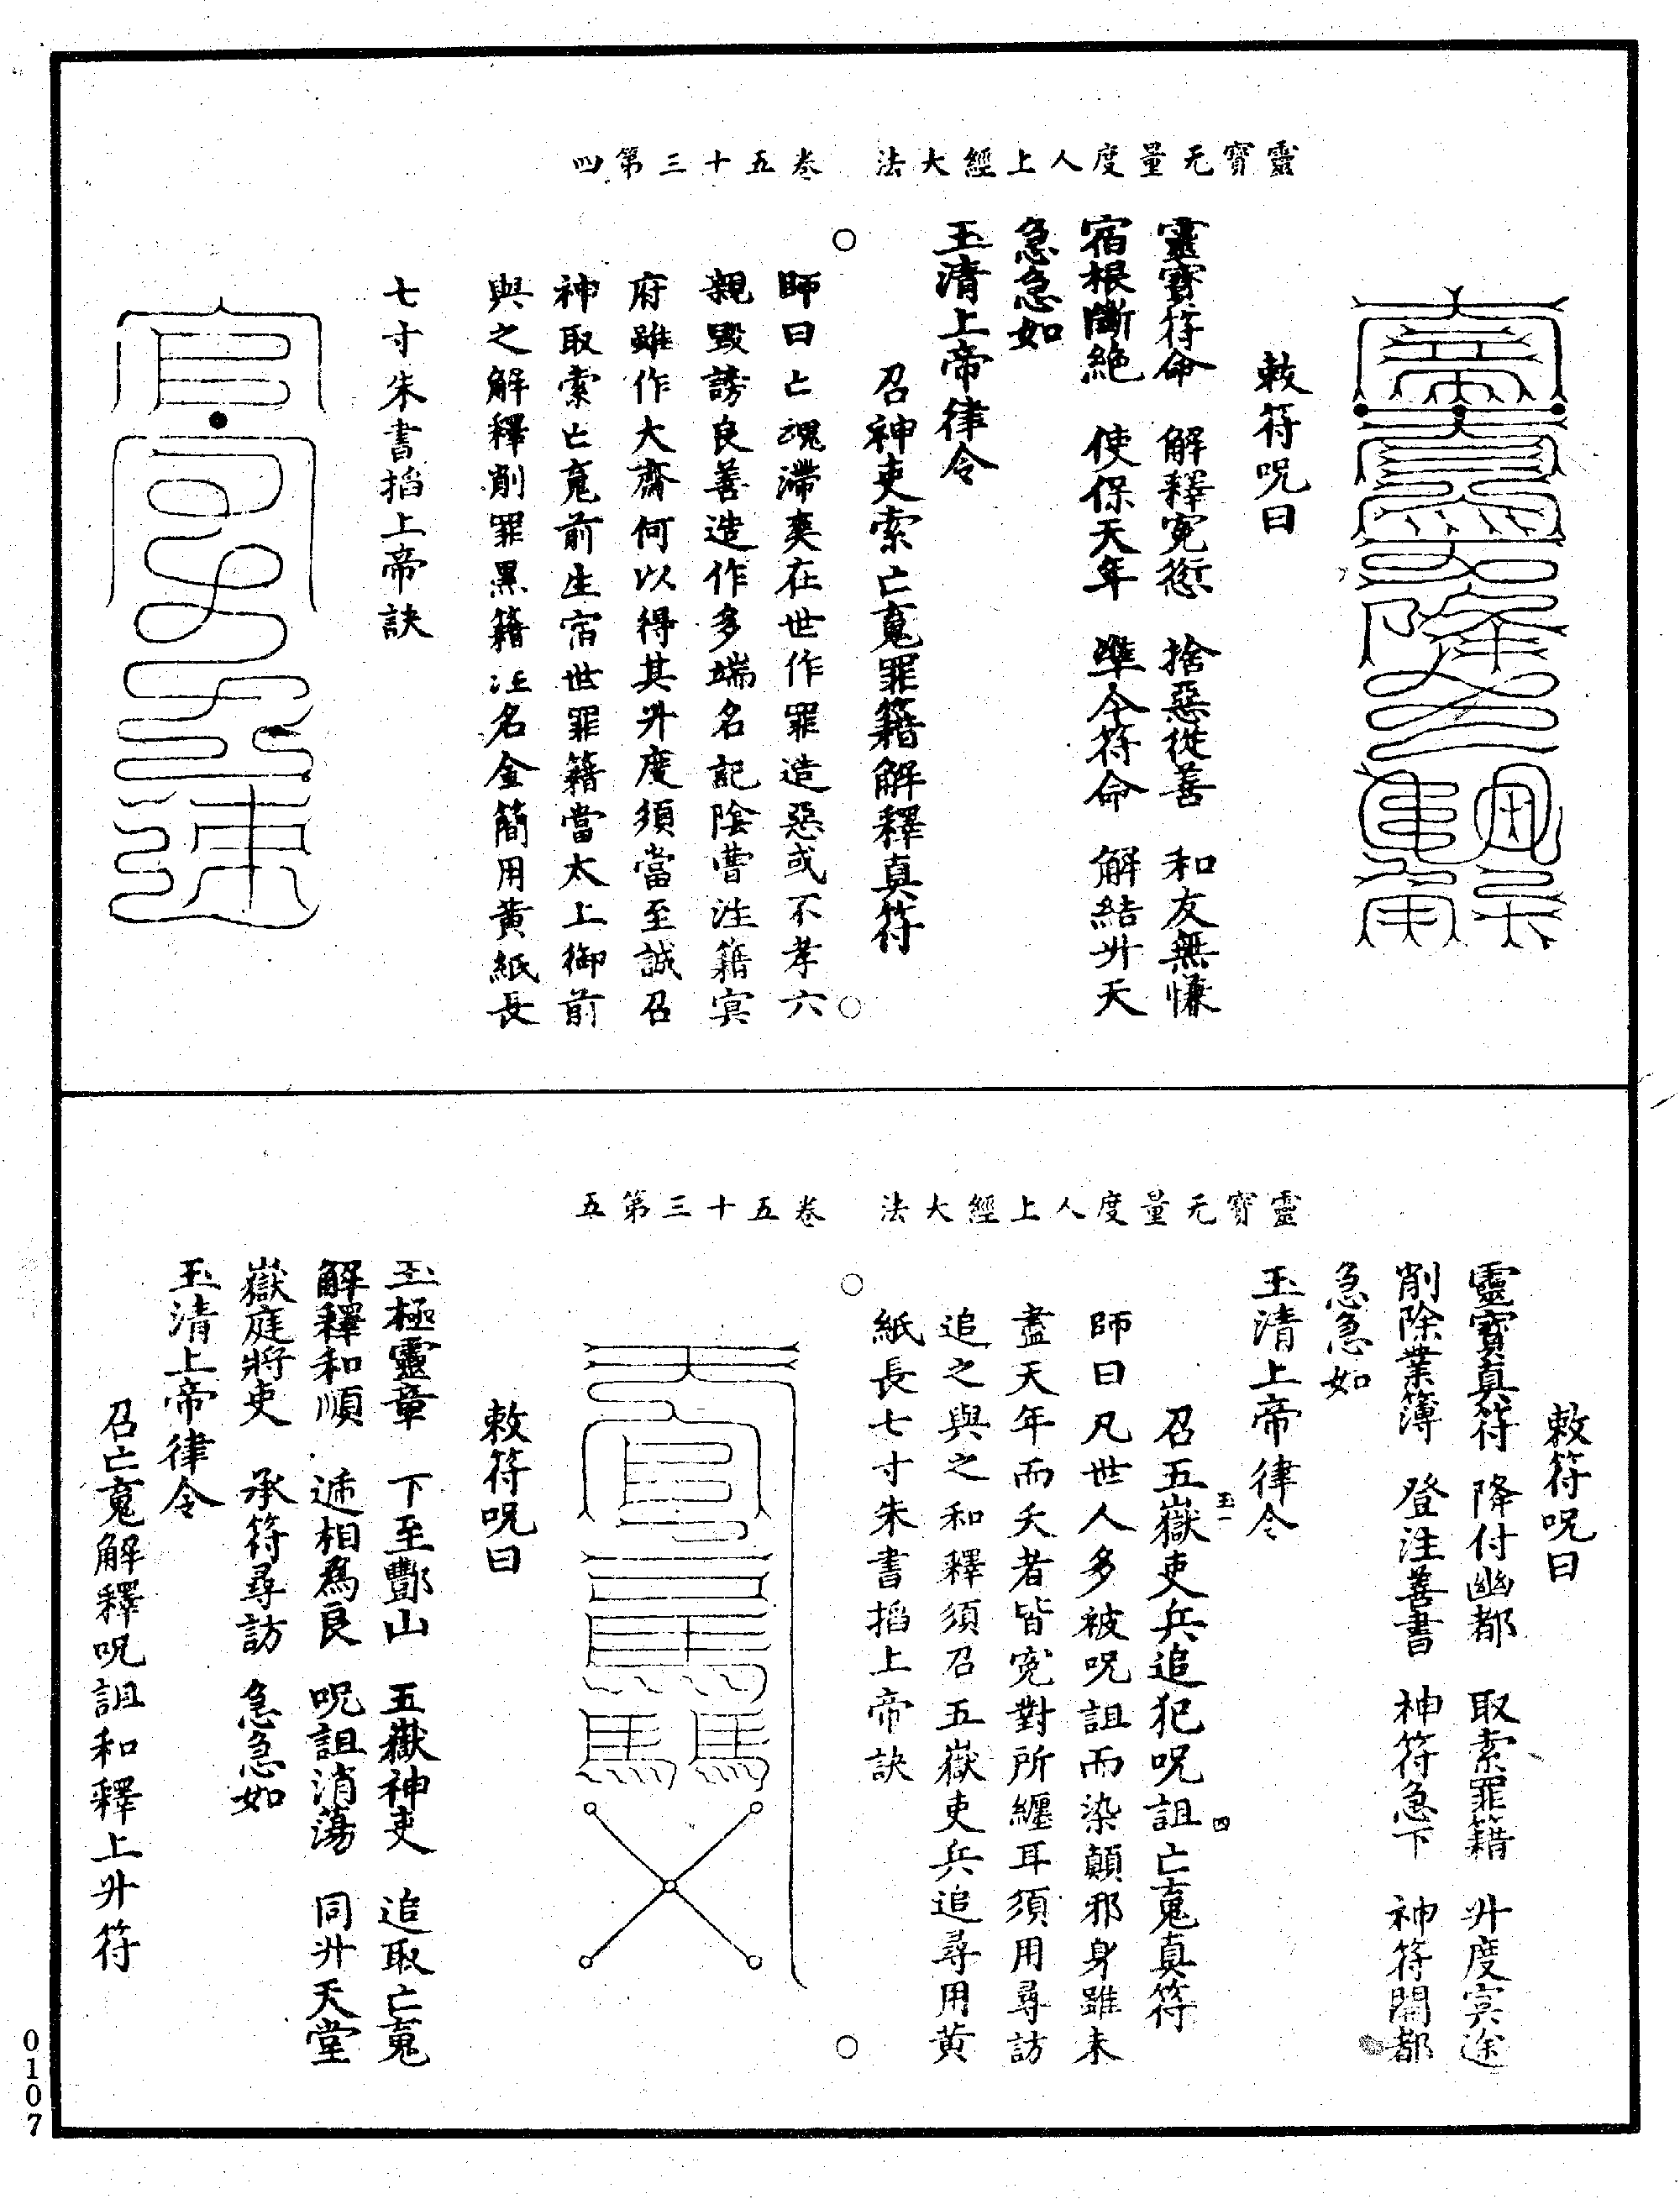 靈寶无量度人上經大法　卷五十三第四
敕符呪曰
靈寶符命　解釋寃愆　捨惡從善　和友無慊
宿根斷絶　使保天年　準今符命　解結升天
急急如
玉清上帝律令
召神吏索亡䰟罪籍解釋真符
師曰亡魂滯爽在世作罪造惡或不孝六
親毀謗良善造作多端名記陰曹注籍㝠
府雖作大齋何以得其升度須當至誠召
神取索亡䰟前生宿世罪籍當太上御前
與之解釋削罪黑籍注名金簡用黄紙長
七寸朱書掐上帝訣
靈寶无量度人上經大法　卷五十三第五
敕符呪曰
靈寶真符　降付幽都　取索罪籍　升度㝠途
削除業簿　登注善書　神符急下　神符開都
急急如
玉清上帝律令
召五嶽吏兵追犯呪詛亡䰟真符
師曰凡世人多被呪詛而染顛邪身雖未
盡天年而夭者皆寃對所纏耳須用尋訪
追之與之和釋須召五嶽吏兵追尋用黄
紙長七寸朱書掐上帝訣
敕符呪曰
玉極靈章　下至酆山　五嶽神吏　追取亡䰟
解釋和順　遞相爲良　呪詛消蕩　同升天堂
嶽庭將吏　承符尋訪　急急如
玉清上帝律令
召亡䰟解釋呪詛和釋上升符
0107